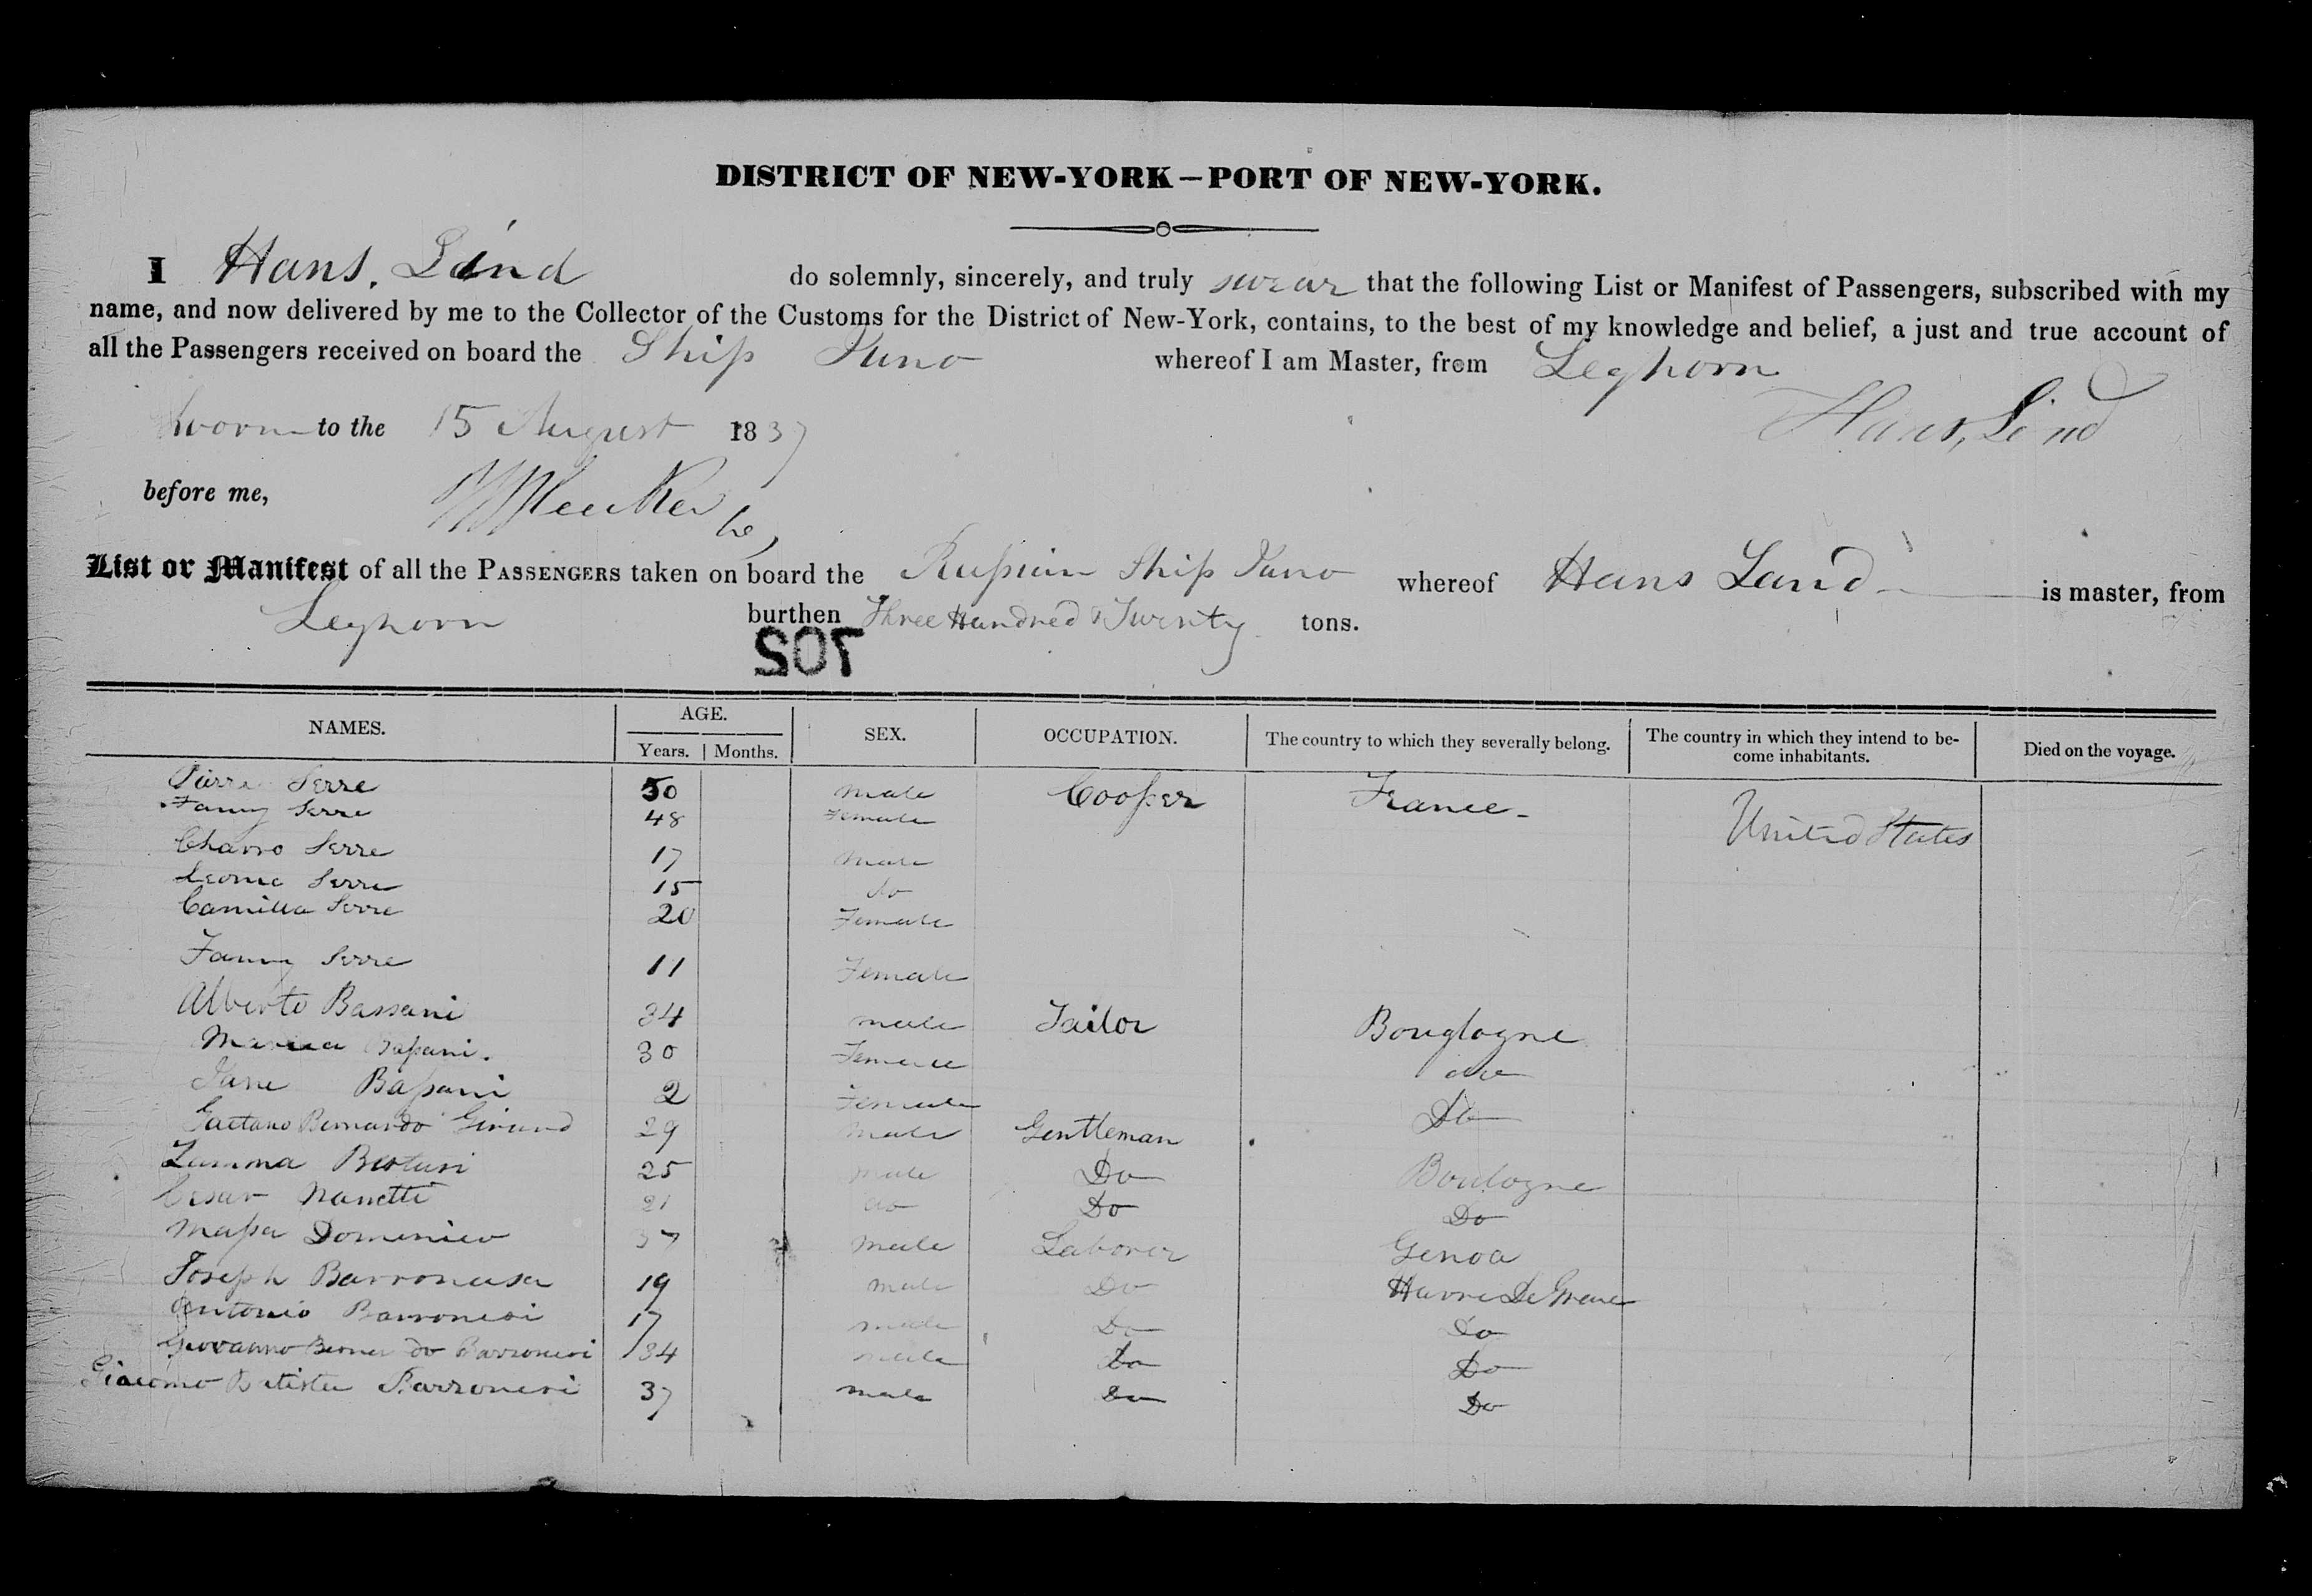 DISTRICT OF NEW-YORK–PORT OF NEW-YORK.
I Hans, Lind do solemnly, sincerely, and truly swear that the following List or Manifest of Passengers, subscribed with my
name, and now delivered by me to the Collector of the Customs for the District of New-York, contains, to the best of my knowledge and belief, a just and true account of
all the Passengers received on board the Ship Juno whereof I am Master, from Leghorn
Sworn to the 15 August 1837 Hans, Lind
before me,
List or Manifest of all the PASSENGERS taken on board the Russian Ship Juno whereof Hans Land is master, from
Leghorn burthen Three Hundred & Twenty tons.
702
NAMES. AGE. SEX. OCCUPATION. The country to which they severally belong. The country in which they intend to be-
come inhabitants. Died on the voyage.
Years. Months.
Pierre Serre 50 male Cooper France United States
Fanny Serre 48 Female
Serre 17 male
Leonie Serre 15 do
Camilla Serre 20 Female
Fanny Serre 11 Female
Alberto Bassani 34 male Tailor Bouglogne
Bassani. 30 Female do
Jane Bassani 2 Female Do
Gaetano Bernardo 29 male Gentleman
25 male Do Boulogne
Cesar Nanetti 21 do Do Do
Massa Domenico 37 male Laborer Genoa
Joseph 19 male Do Havre De Grace
Antonio Barronesi 17 male Do Do
34 male Do Do
Giacomo Batista Barronesi 37 male Do Do